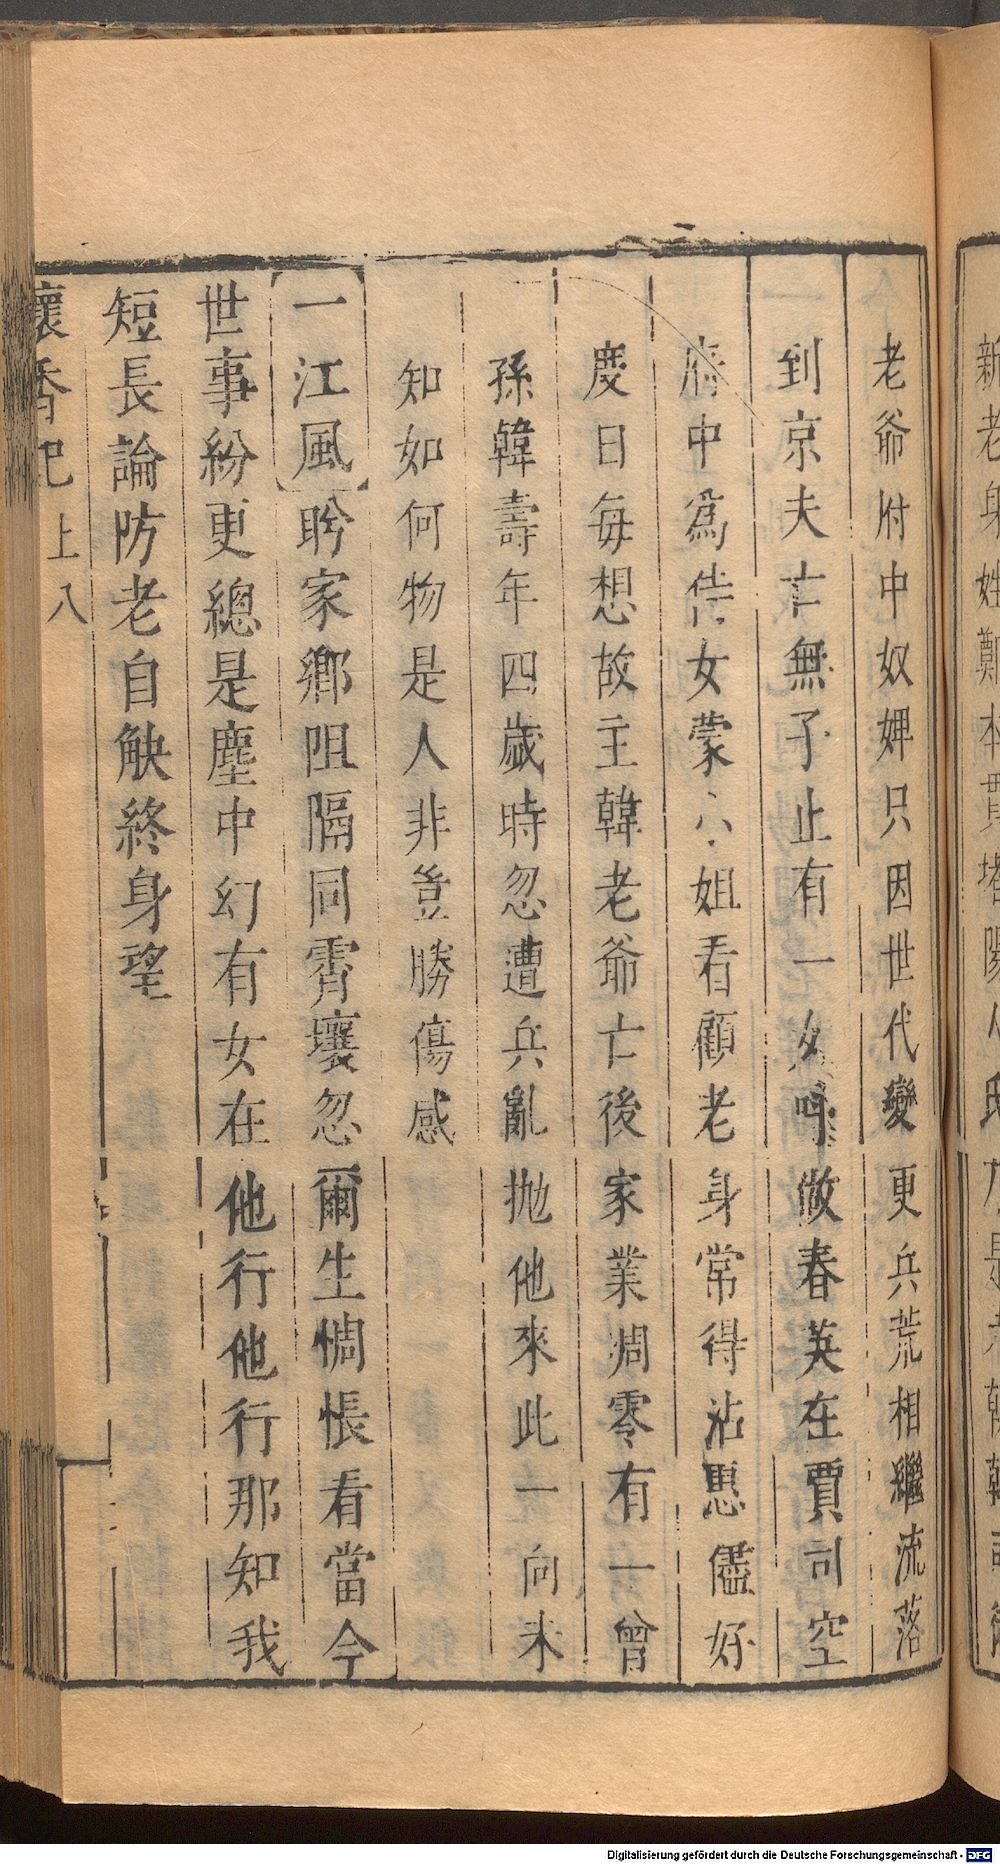 老爺府中奴婢只因世代變更兵荒相繼流落
到京夫亡無子止有一女呼做春英在賈司空
府中爲侍女蒙小姐看顧老身常得沾惠儘好
度日每想故主韓老爺亡後家業凋零有一曾
孫韓壽年四歲時忽遭兵亂拋他來此一向未
知如何物是人非豈勝傷感
一江風盻家鄉阻隔同霄壤忽爾生惆悵看當今
世事紛更總是塵中幻有女在他行他行那知我
短長論防老自觖終身望
懷香記 上 八
Digitalisierung gefördert durch die Deutsche Forschungsgemeinschaft - DFG